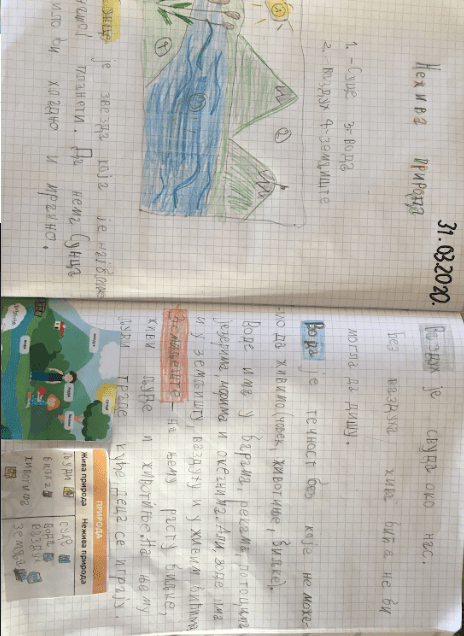 31.03.2020.
Нежива природа
1.-Сунце 3-вода
2.-ваздух 4-земљиште
је звезда која је најближа
планети. Да нема Сунца
било би хладно и мрачно.
Ваздух је свуда око нас.
Без ваздуха жива бића не би
могла да дишу.
Вода је течност без које не може-
мо да живимо (човек, животиње, биљке).
Воде има у барама, рекама, потоцима
језерима, морима и океанима. Али воде има
и у земљишту, ваздуху и у живим бићима
Земљиште - на њему расту биљке,
живи људи и животиње. На њему
људи граде куће, деца се играју.
ПРИРОДА
Жива природа Нежива природа
људи
биљке
животиње
вода
ваздух